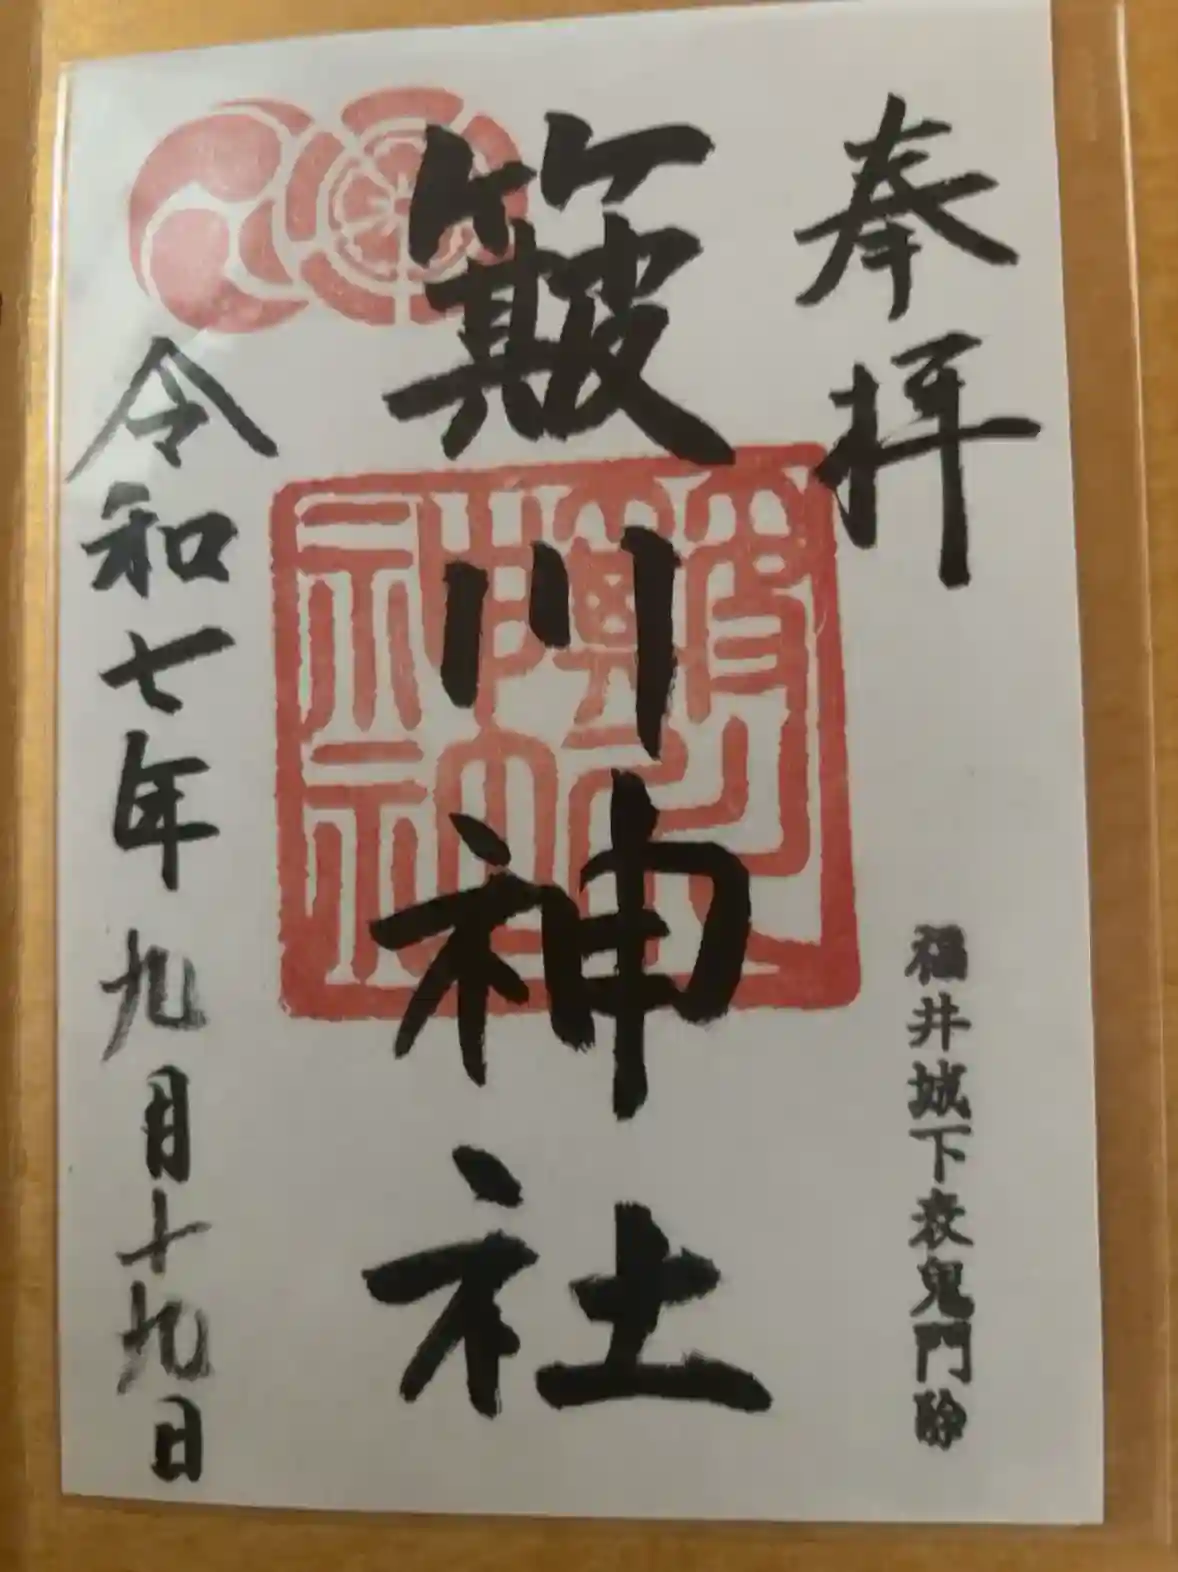 奉拝
福井城下表鬼門除
簸川神社
令和七年九月十九日